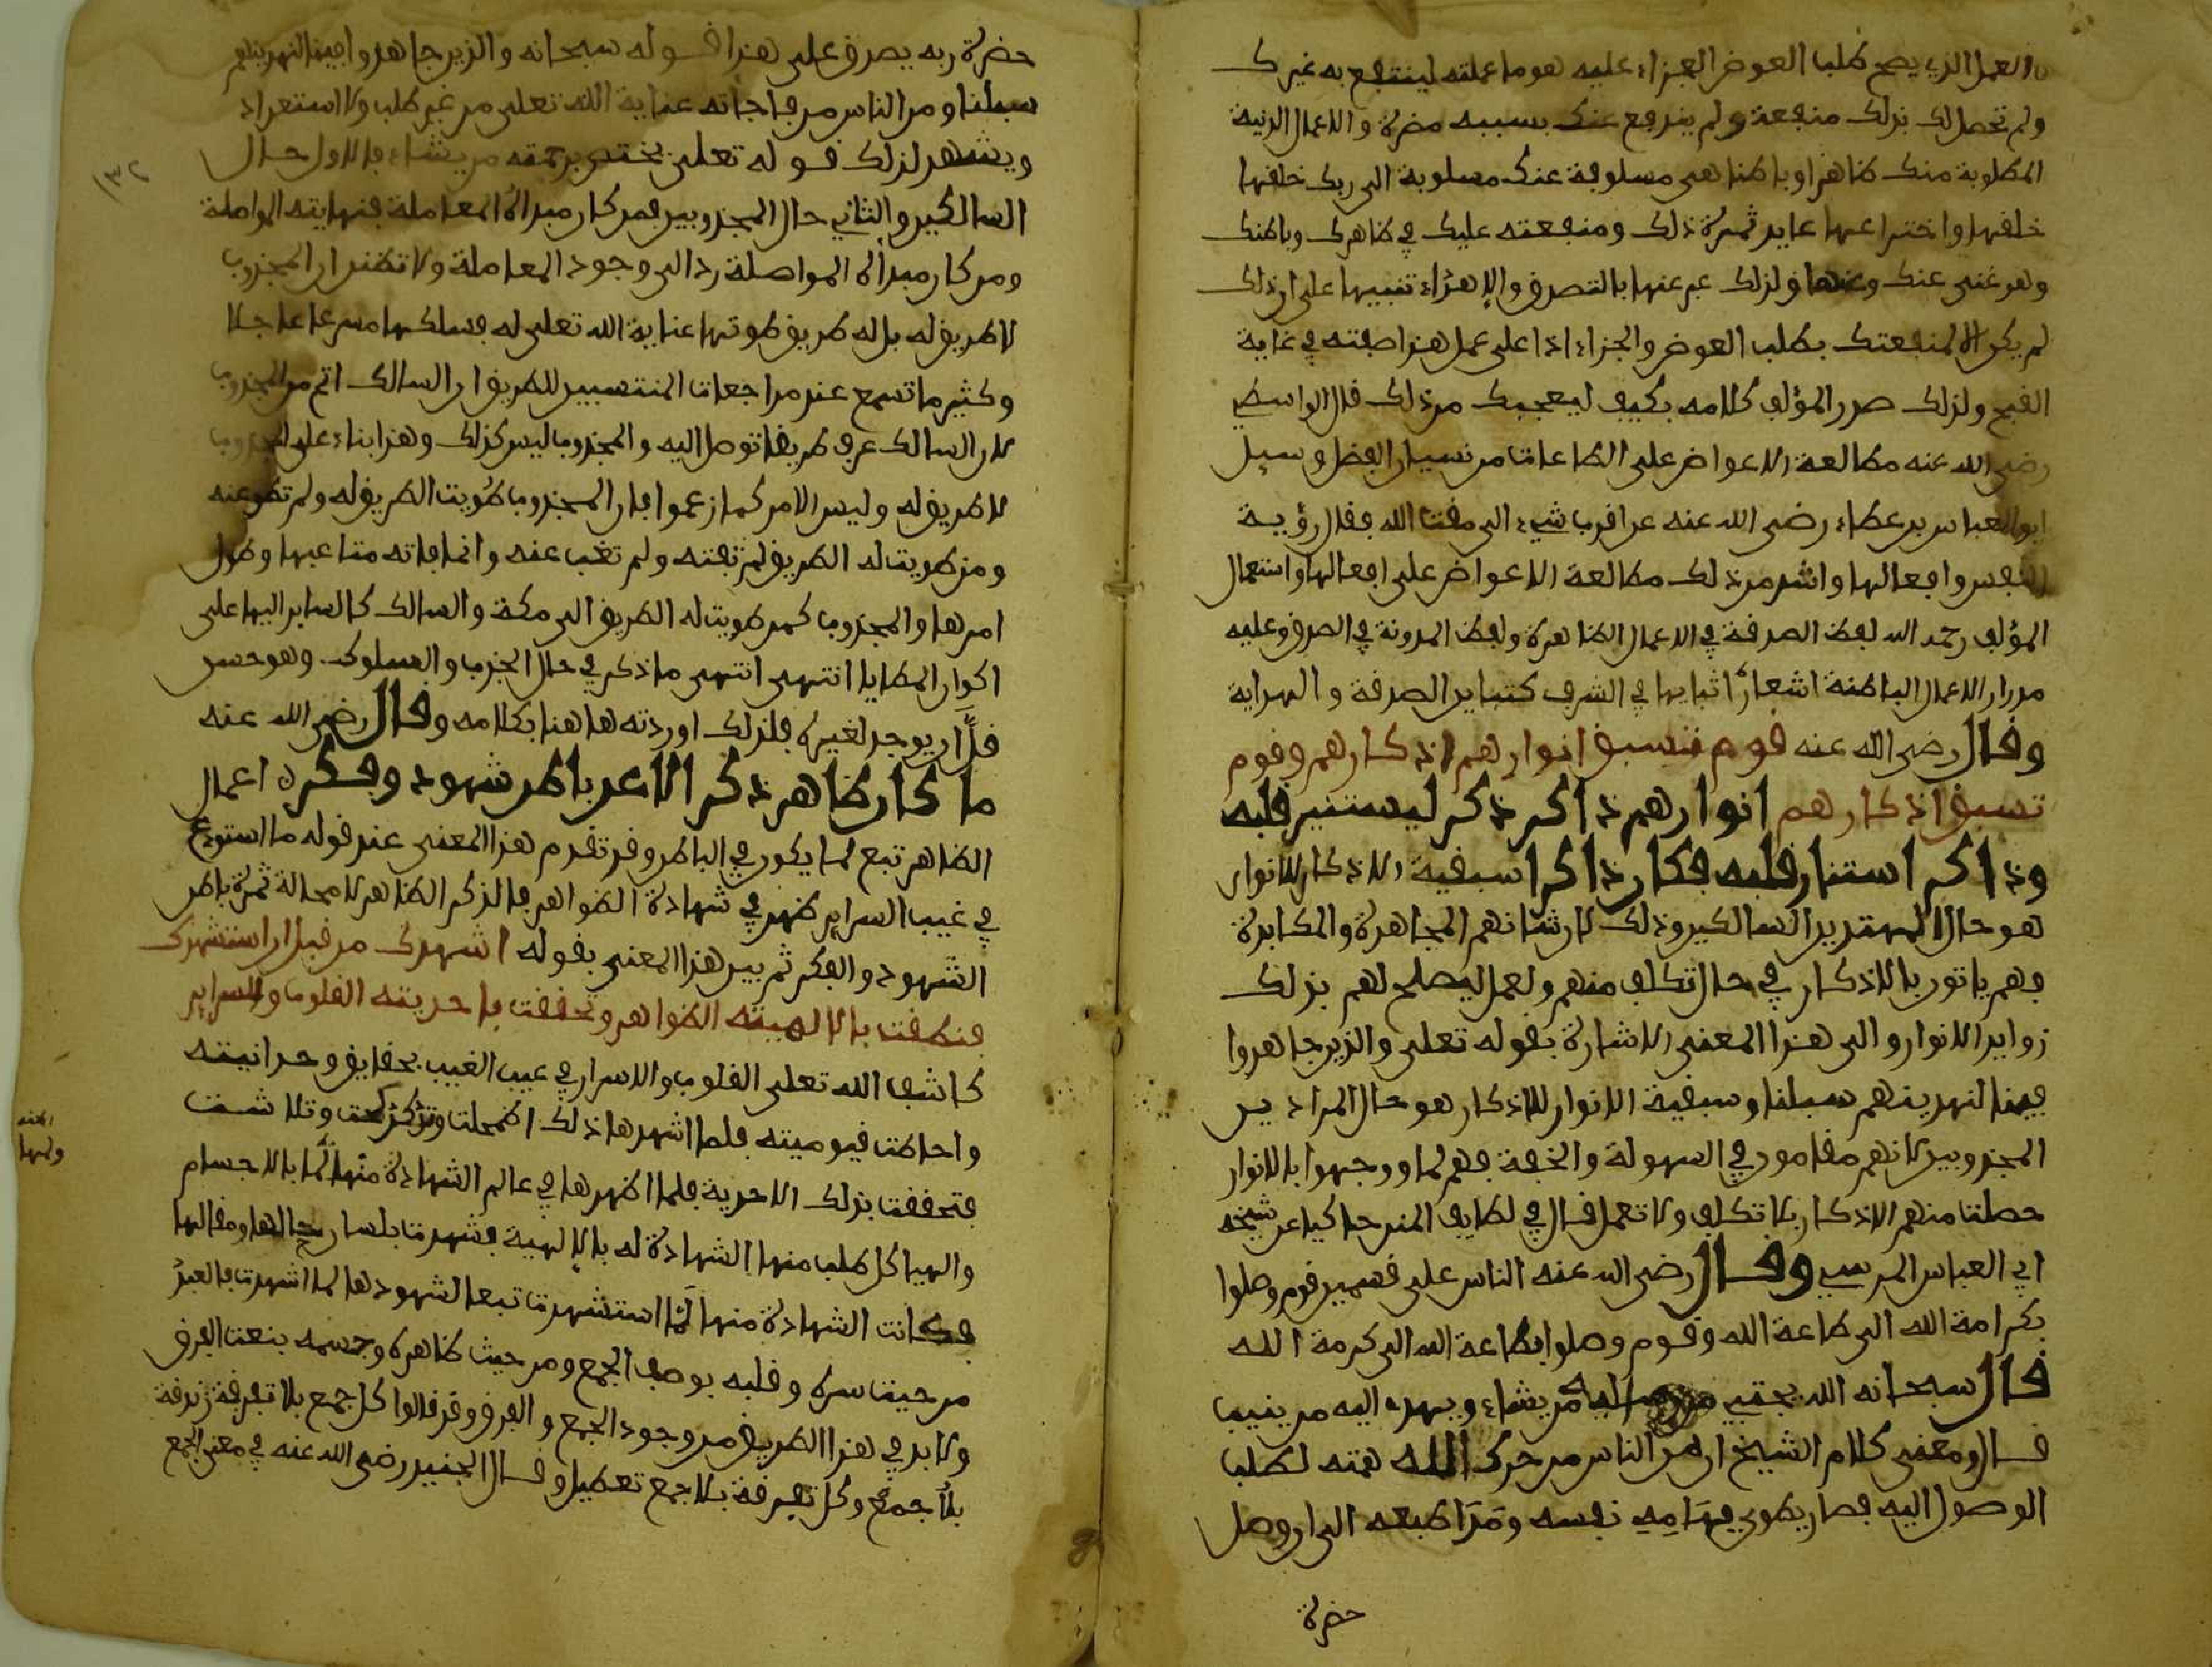 العمل الذي يصح طلب العوض الجزاء عليه هو ما عملته لينتفع به غيرك
ولم تحصل لك بذلك منفعة ولم يندفع عنك بسببه مضرة والاعمال الدنية
المطلوبة منك ظاهرا وباطنا هي مسلوبة عنك منسلوبة الى ربك خلقها
خلقها واخترعها عايد ثمرة ذلك ومنفعته عليك في ظاهرك وباطنك
وهو غني عنك وعنها ولذلك عبر عنها بالتصدق والاهداء تنبيها على ان ذلك
لم يكن الا لمنفعتك بطلب العوض والجزاء اذا على عمل هذا صفته في غاية
القبح ولذلك صدر المؤلف كلامه بكيف ليعجبك من ذلك قال الواسطي
رضي الله عنه مطالعة الاعواض على الطاعات من نسيان الفضل وسيل
ابو العباس بن عطاء رضي الله عنه عن اقرب شيء الى مقت الله فقال رؤية
النفس وافعالها واشد من ذلك مطالعة الاعواض على افعالها واستعمال
المؤلف رحمه الله لفظ الصدقة في الاعمال الظاهرة ولفظ المدونة في الصدق وعليه
مدار الاعمال الباطنة اشعارا بتباينها في الشرف كتباين الصدقة والهداية
وقال رضي الله عنه قوم تسبق انوارهم اذكارهم وقوم
تسبق اذكارهم انوارهم ذاكر ذكر ليستنير قلبه
وذاكر استنار قلبه فكان ذاكرا سبقية الاذكار للانوار
هو حال المهتدين السالكين وذلك لان شانهم المجاهدة والمكابدة
فهم ياتون بالاذكار في حال تكلف منهم وتعمل ليصلح لهم بذلك
زوايد الانوار والى هذا المعنى الاشارة بقوله تعلى والذين جاهدوا
فينا لنهدينهم سبلنا وسبقية الانوار للاذكار هو حال المرادين
المجذوبين لانهم مقامون في السهولة والخفة فهم لما ووجهوا بالانوار
حصلت منهم الاذكار بلا تكلف ولا تعمل قال في لطايف المنن حاكيا عن شيخه
ابي العباس المرسي وقال رضي الله عنه الناس على قسمين قوم وصلوا
بكرامة الله الى طاعة الله وقوم وصلوا بطاعة الله الى كرمة الله
قال سبحانه الله يجتبي اليه من يشاء ويهدي اليه من ينيب
قال ومعنى كلام الشيخ ان من الناس من حرك الله همته لطلب
الوصول اليه فصار يطوي مهامه نفسه وبيدا طبعه الى ان وصل
حضرة
حضرة ربه يصدق على هذا قوله سبحانه والذين جاهدوا فينا لنهدينهم
سبلنا ومن الناس من فاجأته عناية الله تعلى من غير طلب ولا استعداد
ويشهد لذلك قوله تعلى يختص برحمته من يشاء فالاول حال
السالكين والثاني حال المجذوبين فمن كان مبدأه المعاملة فنهايته المواصلة
ومن كان مبدأه المواصلة رد الى وجود المعاملة ولا تظن ان المجذوب
لا طريق له بل له طريق طوتها عناية الله تعلى له فسلكها مسرعا عاجلا
وكثير ما تسمع عند مراجعات المنتسبين للطريق ان السالك اتم من المجذوب
لان السالك عرف طريقا توصل اليه والمجذوب ليس كذلك وهذا بناء على المجذوب
لا طريق له وليس الامر كما زعموا فان المجذوب طويت الطريق له ولم تطو عنه
ومن طويت له الطريق لم تفته ولم تغب عنه وانما فاته متاعبها وطول
امرها والمجذوب كمن طويت له الطريق الى مكة والسالك كالساير اليها على
اكوار المطايا انتهى انتهى ما ذكر في حال الجذب والسلوك. وهو حسن
قل ان يوجد لغيره فلذلك اوردته هاهنا بكلامه وقال رضي الله عنه
ما كان ظاهر ذكر الا عن باطن شهود وفكره اعمال
الظاهر تبع لما يكون في الباطن وقد تقدم هذا المعنى عند قوله ما استودع
في غيب السراير ظهر في شهادة الظواهر فالذكر الظاهر لا محالة ثمرة باطن
الشهود والفكر ثم بين هذا المعنى بقوله اشهدك من قبل ان استشهدك
فنطقت بالالهيته الظواهر وتحققت باحديته القلوب والسراير
كاشف الله تعلى القلوب والاسرار في غيب الغيب بحقايق وحدانيته
واحاطت قيوميته فلما اشهدها ذلك اضمحلت وتدكدكت وتلاشت
فتحققت بذلك الاحدية فلما اظهرها في عالم الشهادة منها لما بالاجسام
والهياكل طلب منها الشهادة له بالالهية فشهدت بلسان حالها ومقالها
فكانت الشهادة منها لما استشهدت تبعا لشهودها لما اشهدت فالعبد
من حيث سره وقلبه بوصف الجمع ومن حيث ظاهره وجسمه بنعت الفرق
ولا بد في هذا الطريق من وجود الجمع والفرق وقد قالوا كل جمع بلا تفرقة زندقة
بلا جمع وكل تفرقة بلا جمع تعطيل وقال الجنيد رضي الله عنه في معنى الجمع
١٣٢